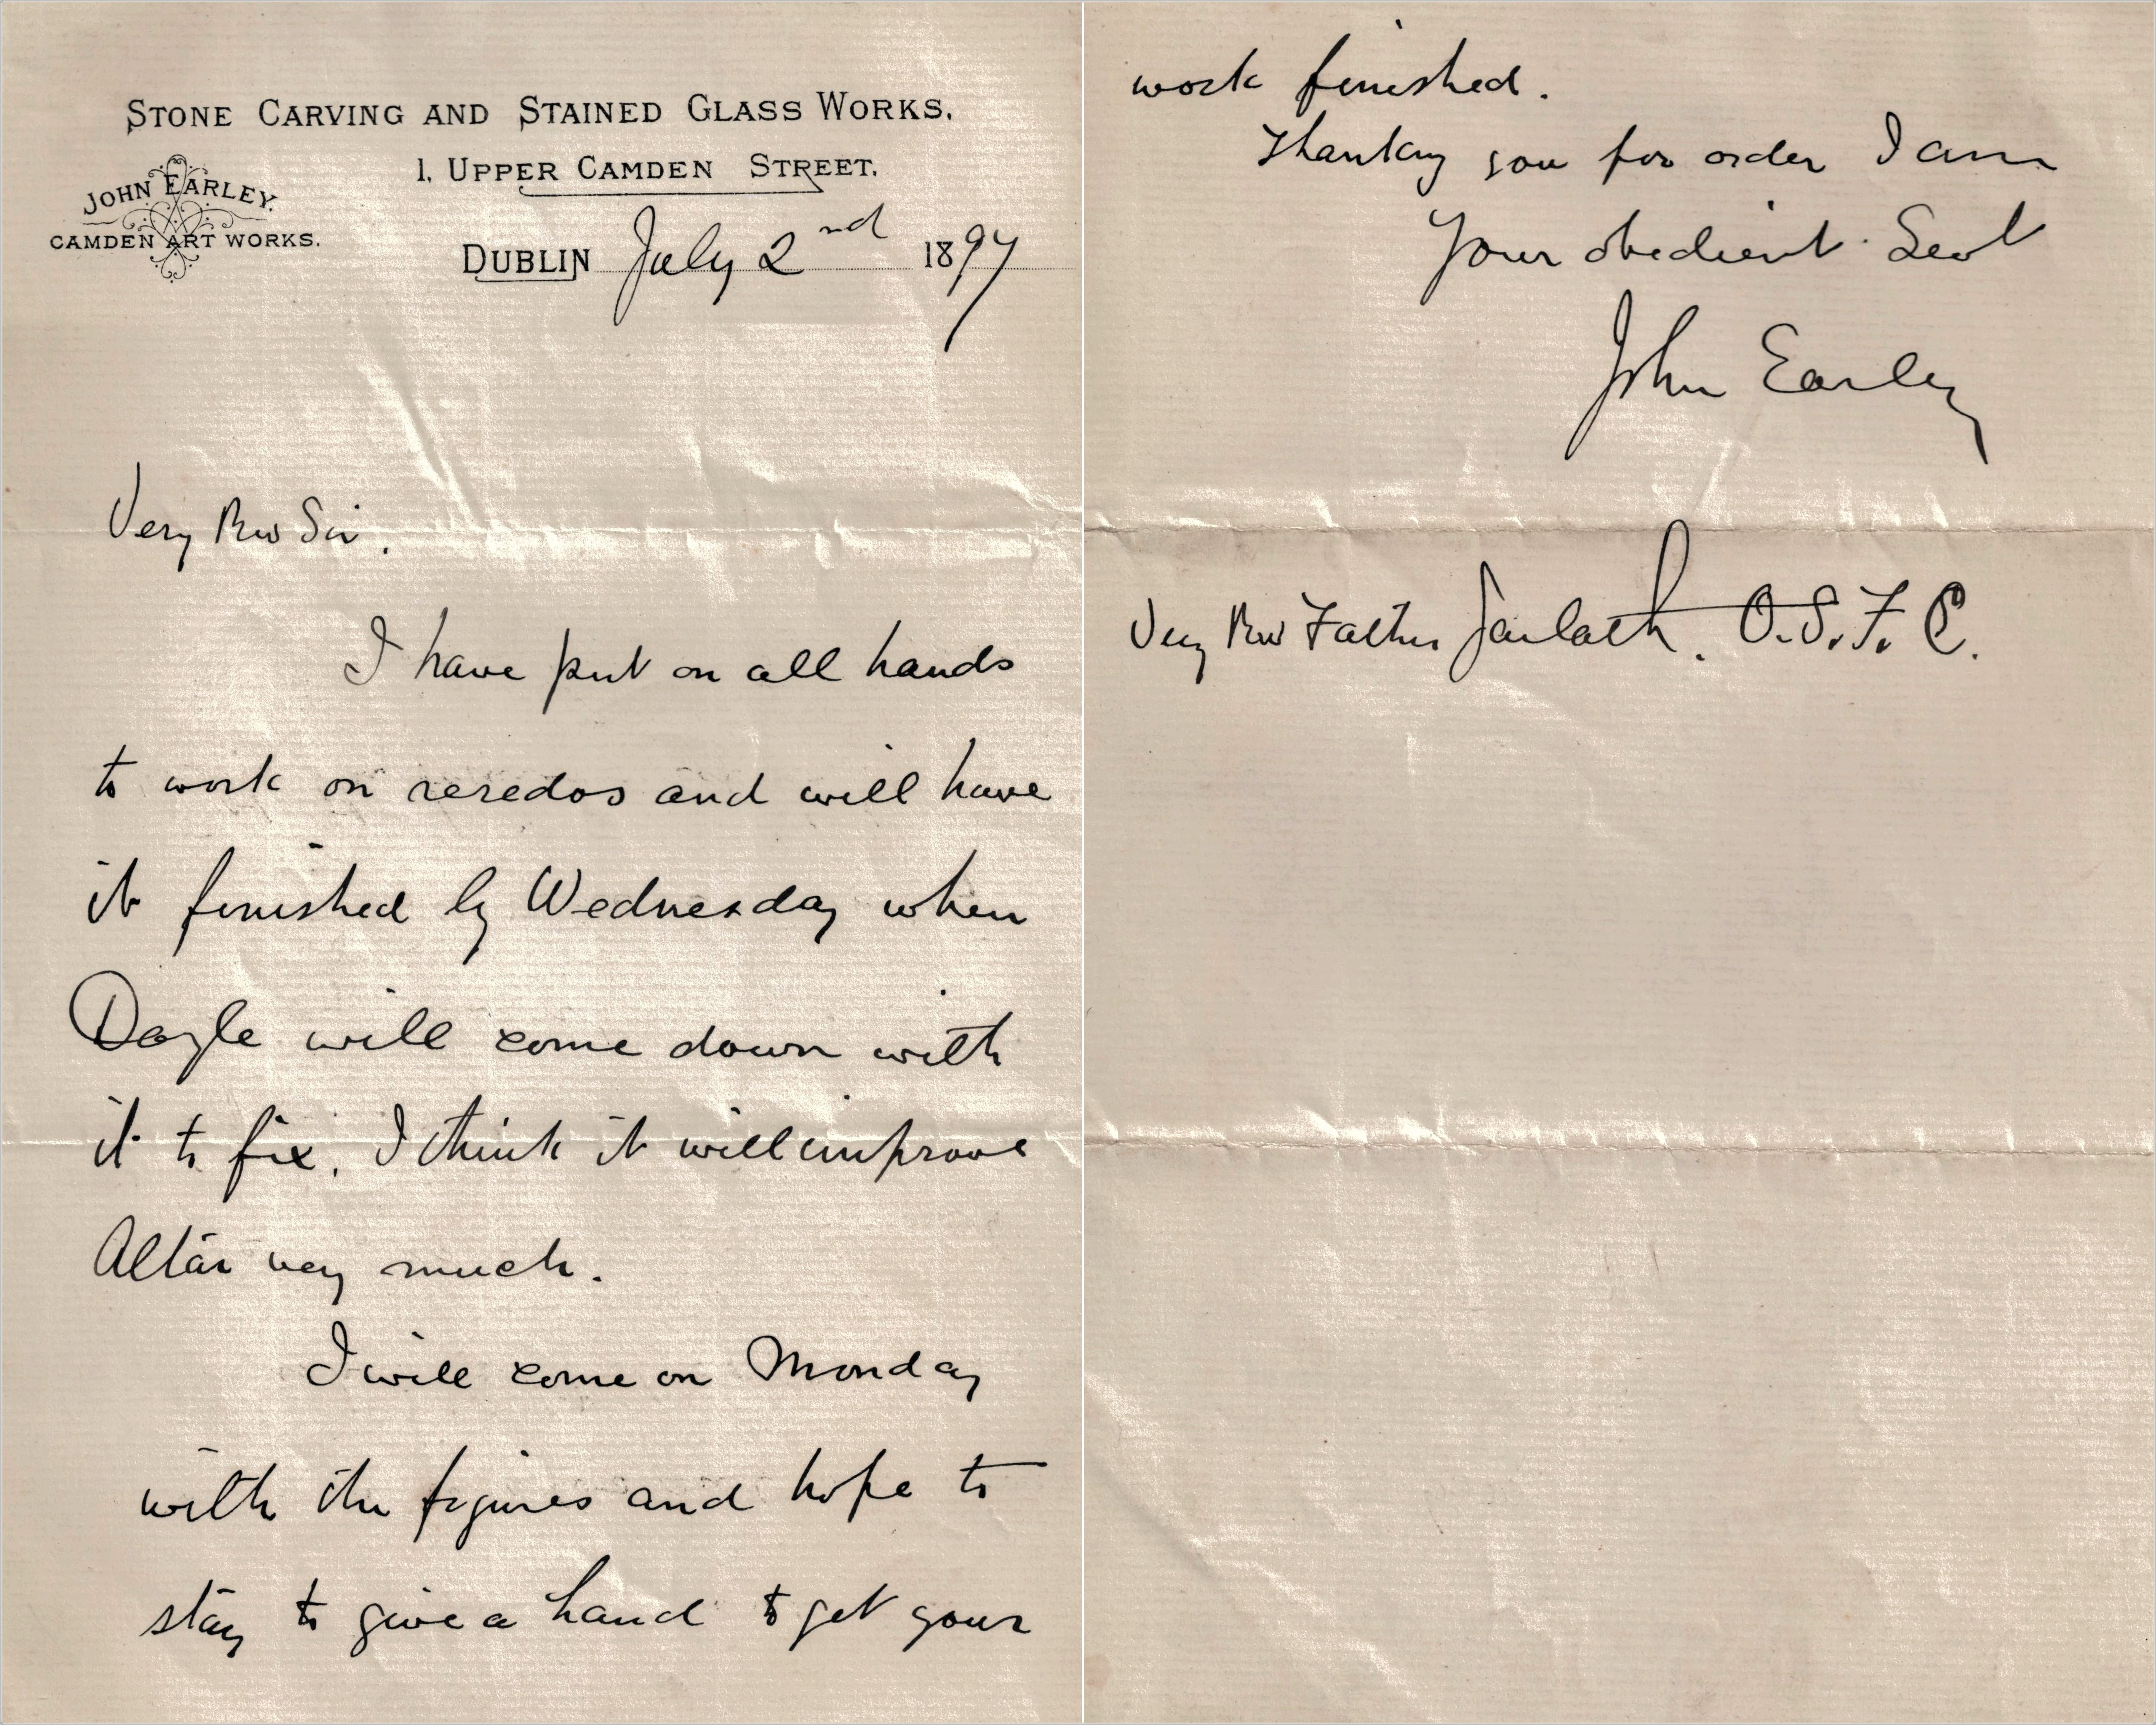 STONE CARVING AND STAINED GLASS WORKS.
1, UPPER CAMDEN STREET.
JOHN EARLEY.
CAMDEN ART WORKS.
DUBLIN July 2nd 1897
Very Rev Sir.
I have put on all hands
to work on reredos and will have
it finished by Wednesday when
Doyle will come down with
it to fix. I think it will improve
Altar very much.
I will come on Monday
with the figures and hope to
stay to give a hand to get your
work finished.
Thanking you for order I am
Your obedient Sevt
John Earley
Very Rev Father Jarlath. O.S.F.C.